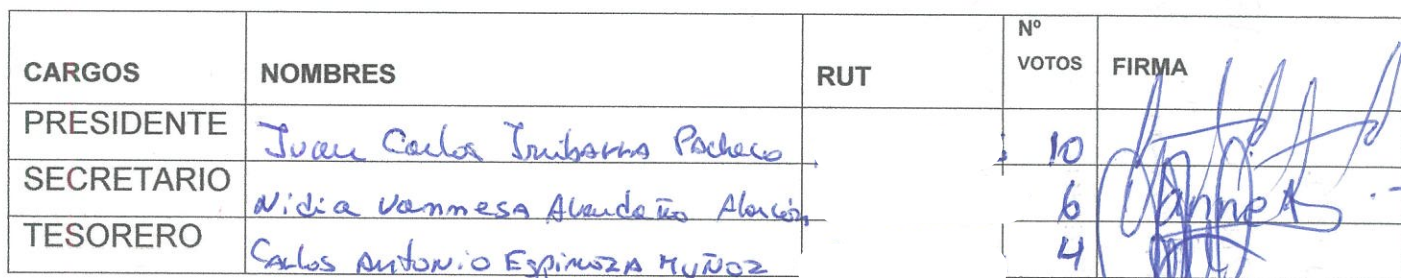 CARGOS NOMBRES RUT Nº VOTOS FIRMA
PRESIDENTE Juan Carlos Irribarra Pacheco 10
SECRETARIO Nidia Vannmesa Avendaño Alarcón 6
TESORERO Carlos Antonio Espinoza Muñoz 4